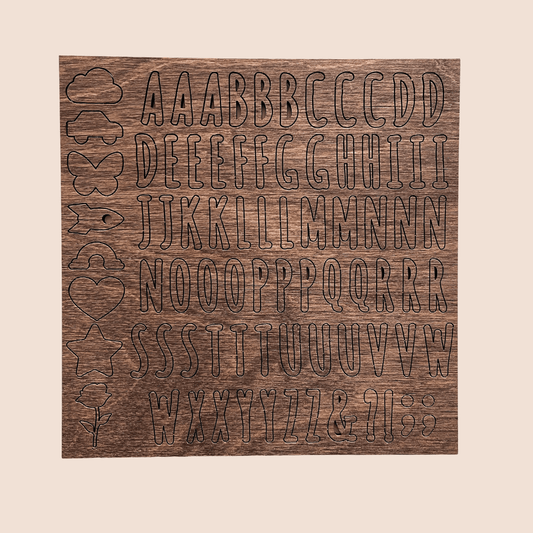 AAABBBCCCDD
DEEEFFGGHHIII
JJKKLLLMMNNN
NOOOPPPQQRRR
SSSTTTUUUVVVW
WXXYYZZ&?!:;